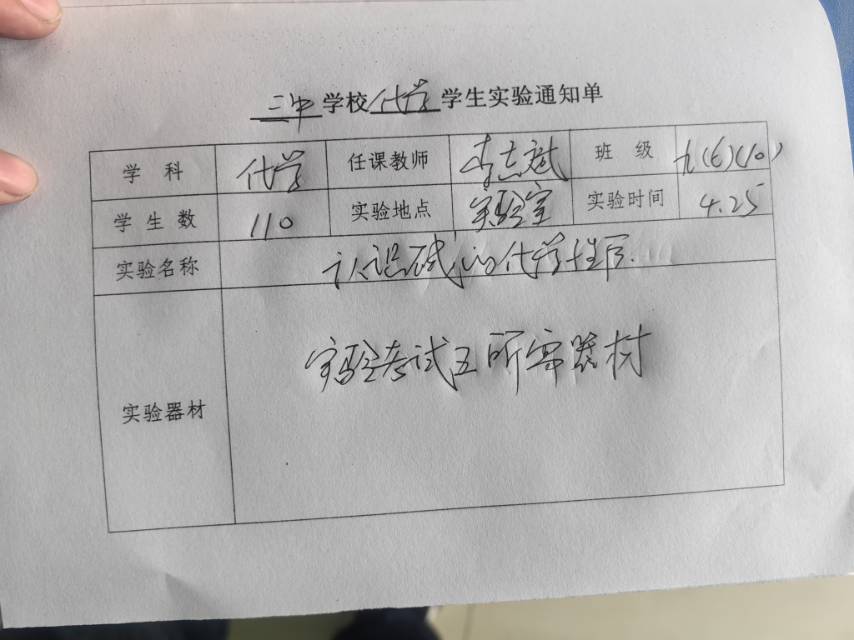 三中学校化学学生实验通知单
学 科 化学 任课教师 李志斌 班 级 九(6)(10)
学 生 数 110 实验地点 实验室 实验时间 4.25
实验名称 认识碱的化学性质
实验器材 实验考试五所需器材